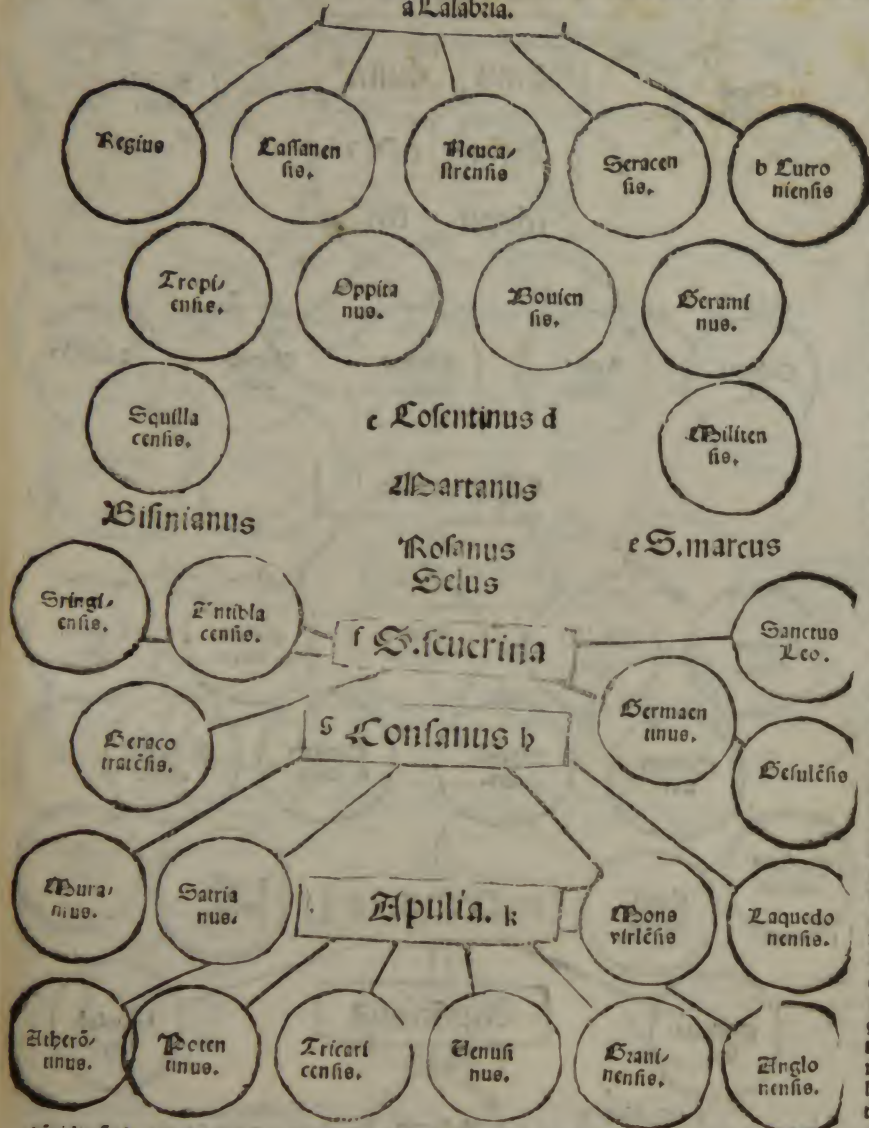 a Calabria.
Regius
Cassanen
sis.
Neuca/
strensis
Seracen
sis.
b Cutro
niensis
Tropi/
ensis.
Oppita
nus.
Bouien
sis.
Gerami
nus.
Squilla
censis.
c Cosentinus d
Militen
sis.
Martanus
Bisinianus
Rosanus
e S.marcus
Selus
Stingi/
ensis.
Entibla
censis.
f S.seuerina
Sanctus
Leo.
Geraco
tratēsis.
g Consanus h
Germaen
tinus.
Gesulēsis
Mura/
nus.
Satria
nus.
Apulia. k
Mons
virlēsis
Laquedo
nensis.
Atherō/
tinus.
Poten
tinus.
Tricari
censis.
Uenusi
nus.
Graui/
nensis.
Anglo
nensis.